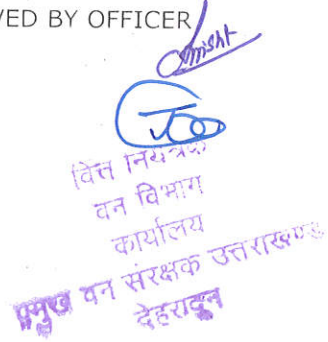 VED BY OFFICER
वित्त नियंत्रक
वन विभाग
कार्यालय
प्रमुख वन संरक्षक उत्तराखण्ड
देहरादून